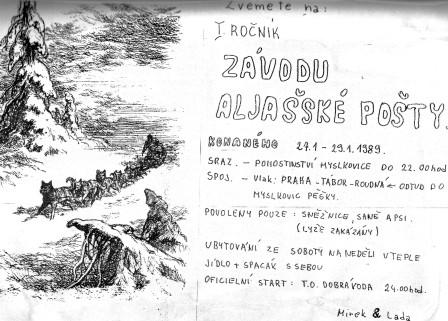 Zveme te na:
I ROČNÍK
ZÁVODU
ALJAŠSKÉ POŠTY.
KONANÉHO 27.1 - 29.1. 1989.
SRAZ. - POHOSTINSTVÍ MYSLKOVICE DO 22.00hod
SPOJ. - Vlak: PRAHA - TÁBOR - ROUDNÁ ← ODTUD DO
MYSLKOVIC PĚŠKY.
POVOLENY POUZE: SNĚŽNICE, SANĚ A PSI.
(LYŽE ZAKÁZÁNY)
UBYTOVÁNÍ ZE SOBOTY NA NEDĚLI V TEPLE
JÍDLO + SPACÁK S SEBOU
OFICIELNÍ START: T.O. DOBRÁVODA 24.00hod.
Mirek & Lada